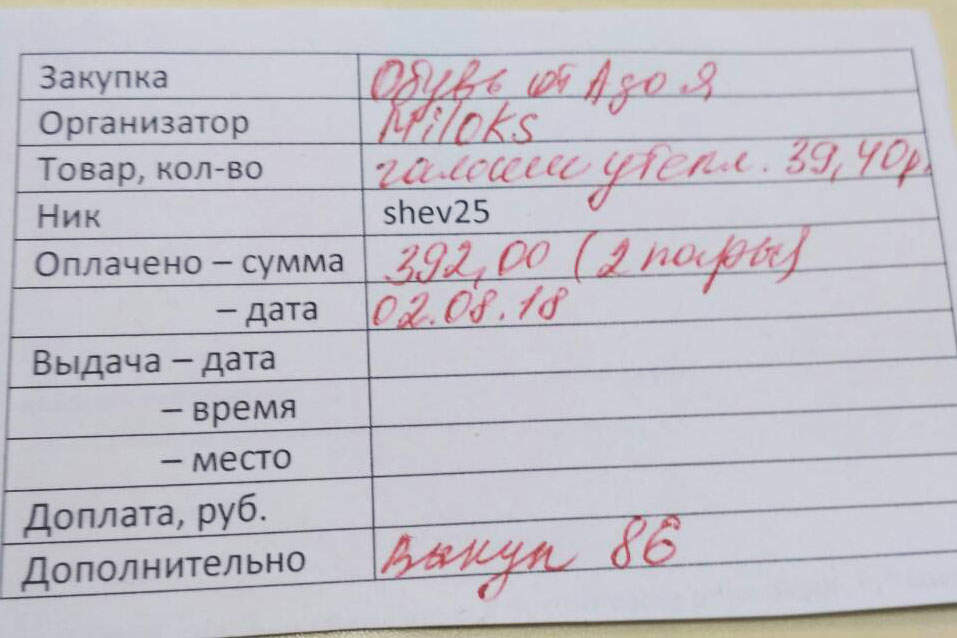 Закупка Обувь от А до Я
Организатор Miloks
Товар, кол-во галоши утепл. 39,40р.
Ник shev25
Оплачено – сумма 392,00 (2 пары)
– дата 02.08.18
Выдача – дата
– время
– место
Доплата, руб.
Дополнительно Выкуп 86